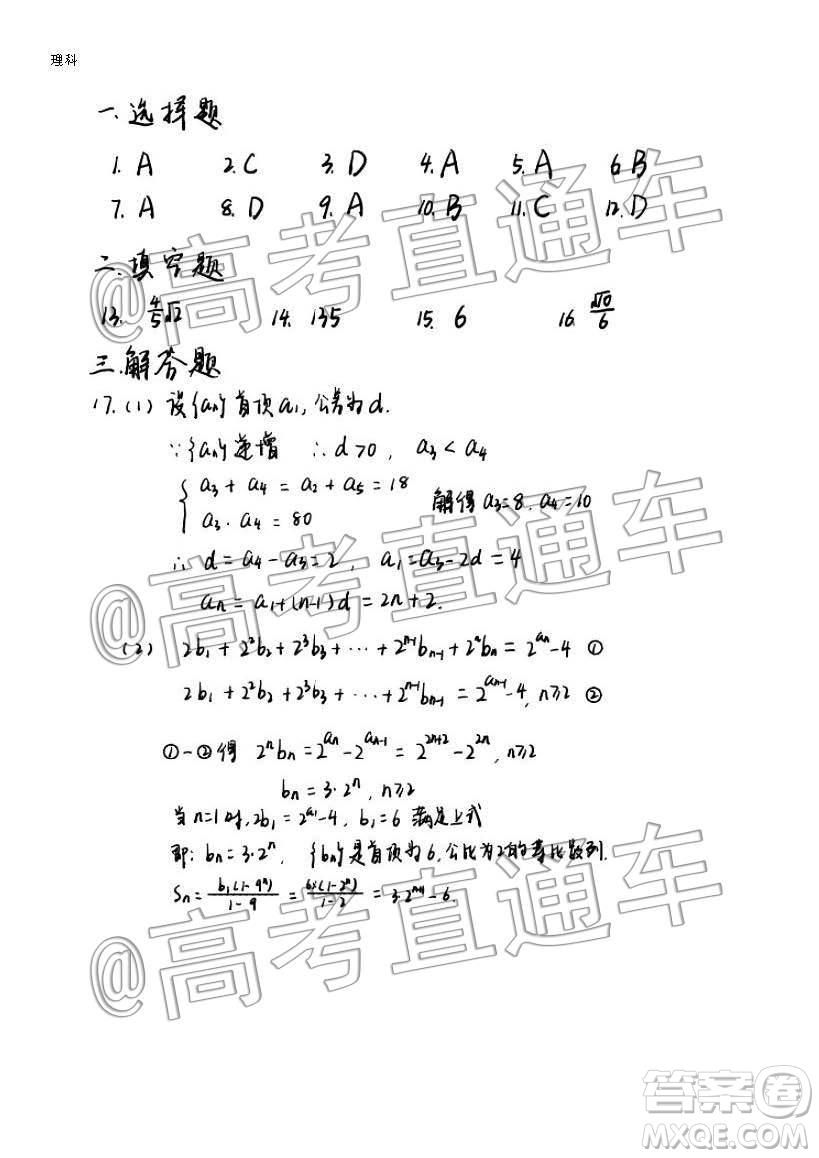 理科
一.选择题
1. A 2. C 3. D 4. A 5. A 6. B
7. A 8. D 9. A 10. B 11. C 12. D
二.填空题
13. 4/5√2 14. 135 15. 6 16. √10/6
三.解答题
17. (1) 设{an}首项a₁,公差为d.
∵{an}递增 ∴d>0, a₃<a₄
{ a₃+a₄=a₂+a₅=18
a₃·a₄=80 解得a₃=8.a₄=10
∴ d=a₄-a₃=2, a₁=a₃-2d=4
aₙ=a₁+(n-1)d=2n+2.
(2) 2b₁+2²b₂+2³b₃+⋯+2^(n-1)b_(n-1)+2ⁿbₙ=2^(aₙ)-4 ①
2b₁+2²b₂+2³b₃+⋯+2^(n-1)b_(n-1)=2^(a_(n-1))-4,n≥2 ②
①-②得 2ⁿbₙ=2^(aₙ)-2^(a_(n-1))=2^(2n+2)-2^(2n),n≥2
bₙ=3·2ⁿ,n≥2
当n=1时,2b₁=2^(a₁)-4,b₁=6 满足上式
即:bₙ=3·2ⁿ, {bn}是首项为6,公比为2的等比数列.
Sₙ=b₁(1-qⁿ)/(1-q)=6×(1-2ⁿ)/(1-2)=3·2^(n+1)-6.
@高考直通车
@高考直通车
@高考直通车
答案卷
MXQE.COM